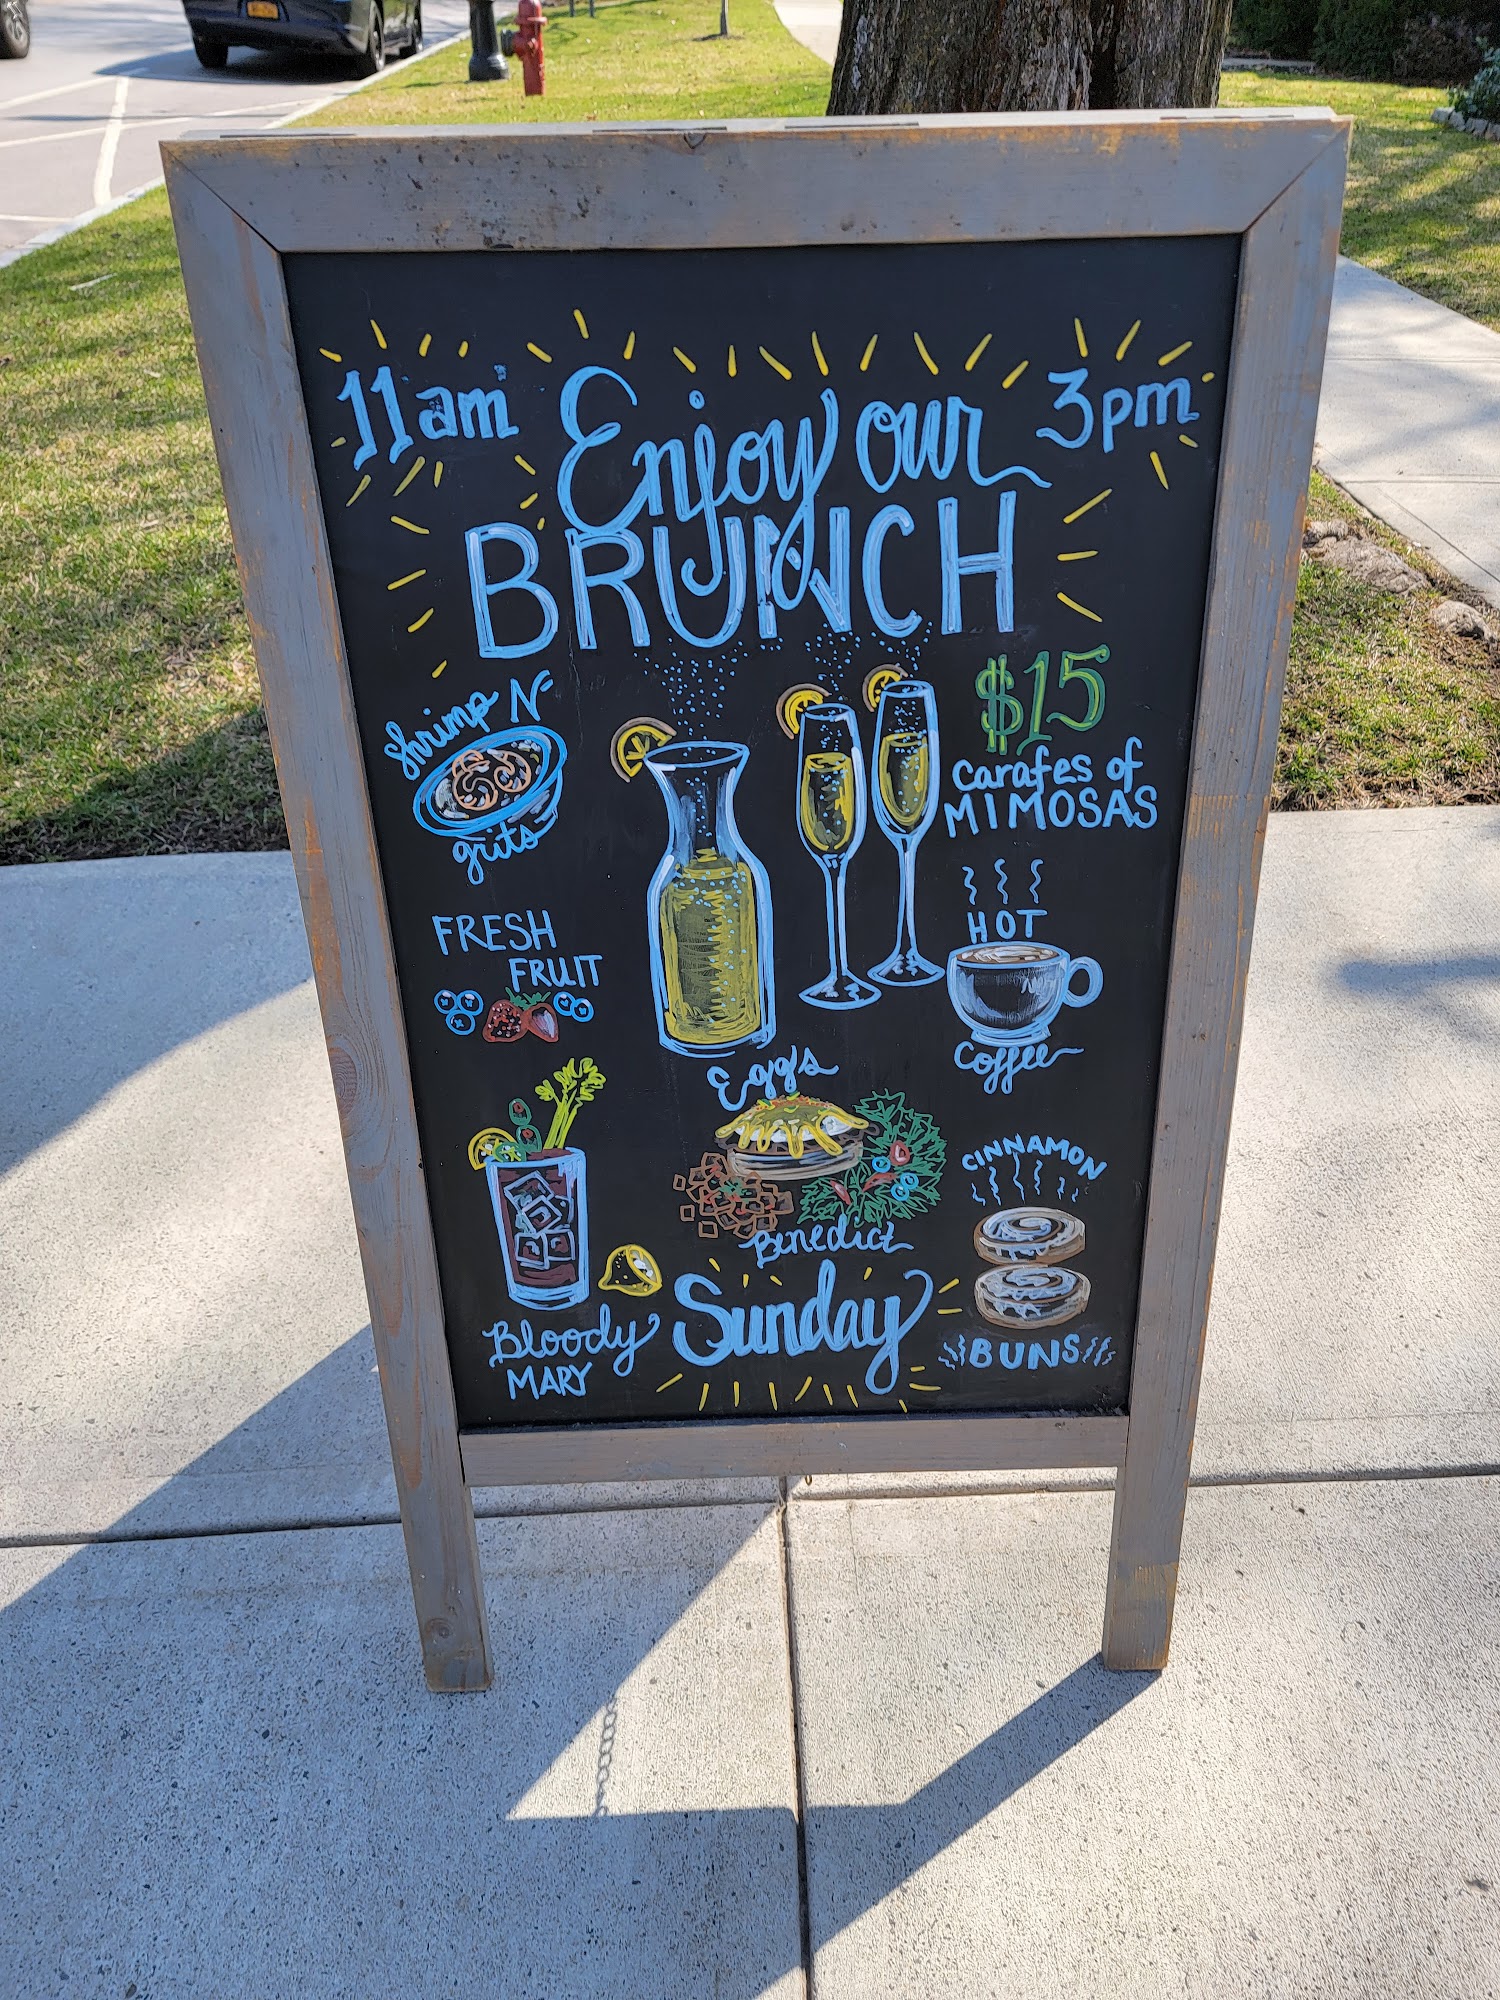 11am
Enjoy our
3pm
BRUNCH
Shrimp N
grits
$15
carafes of
MIMOSAS
FRESH
FRUIT
HOT
Coffee
Eggs
Benedict
CINNAMON
BUNS
Bloody
MARY
Sunday